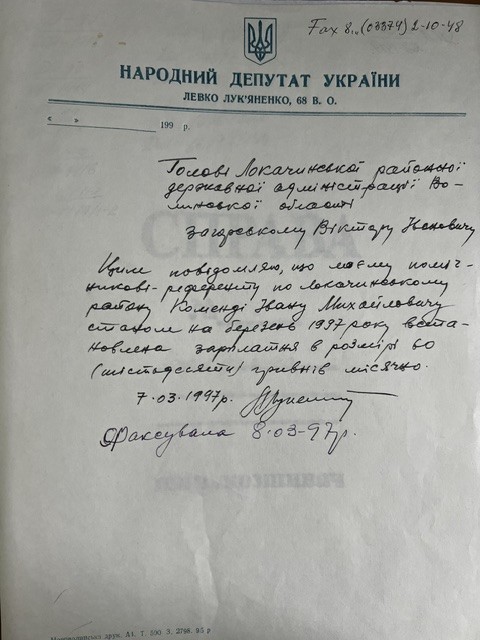 Fax 8,, (03374) 2-10-48
НАРОДНИЙ ДЕПУТАТ УКРАЇНИ
ЛЕВКО ЛУК'ЯНЕНКО, 68 В. О.
« » 199 р.
Голові Локачинської районної
державної адміністрації Во-
линської області
Загорському Віктору Івановичу
Цим повідомляю, що моєму поміч-
никові-референту по Локачинському
району Коменді Івану Михайловичу
станом на березень 1997 року вста-
новлена зарплатня в розмірі 60
(шістдесяти) гривнів місячно.
7.03.1997р.
Факсувала 8.03-97р.
друк. Зл. Т. 500 З. 2798. 95 р